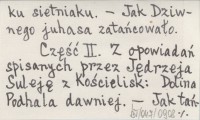 ku siętniaku. – Jak Dziw-
nego juhasa zatańcowało.
Część II. Z opowiadań
spisanych przez Jędrzeja
Suleję z Kościelisk: Dolina
Podhala dawniej. – Jak tań-